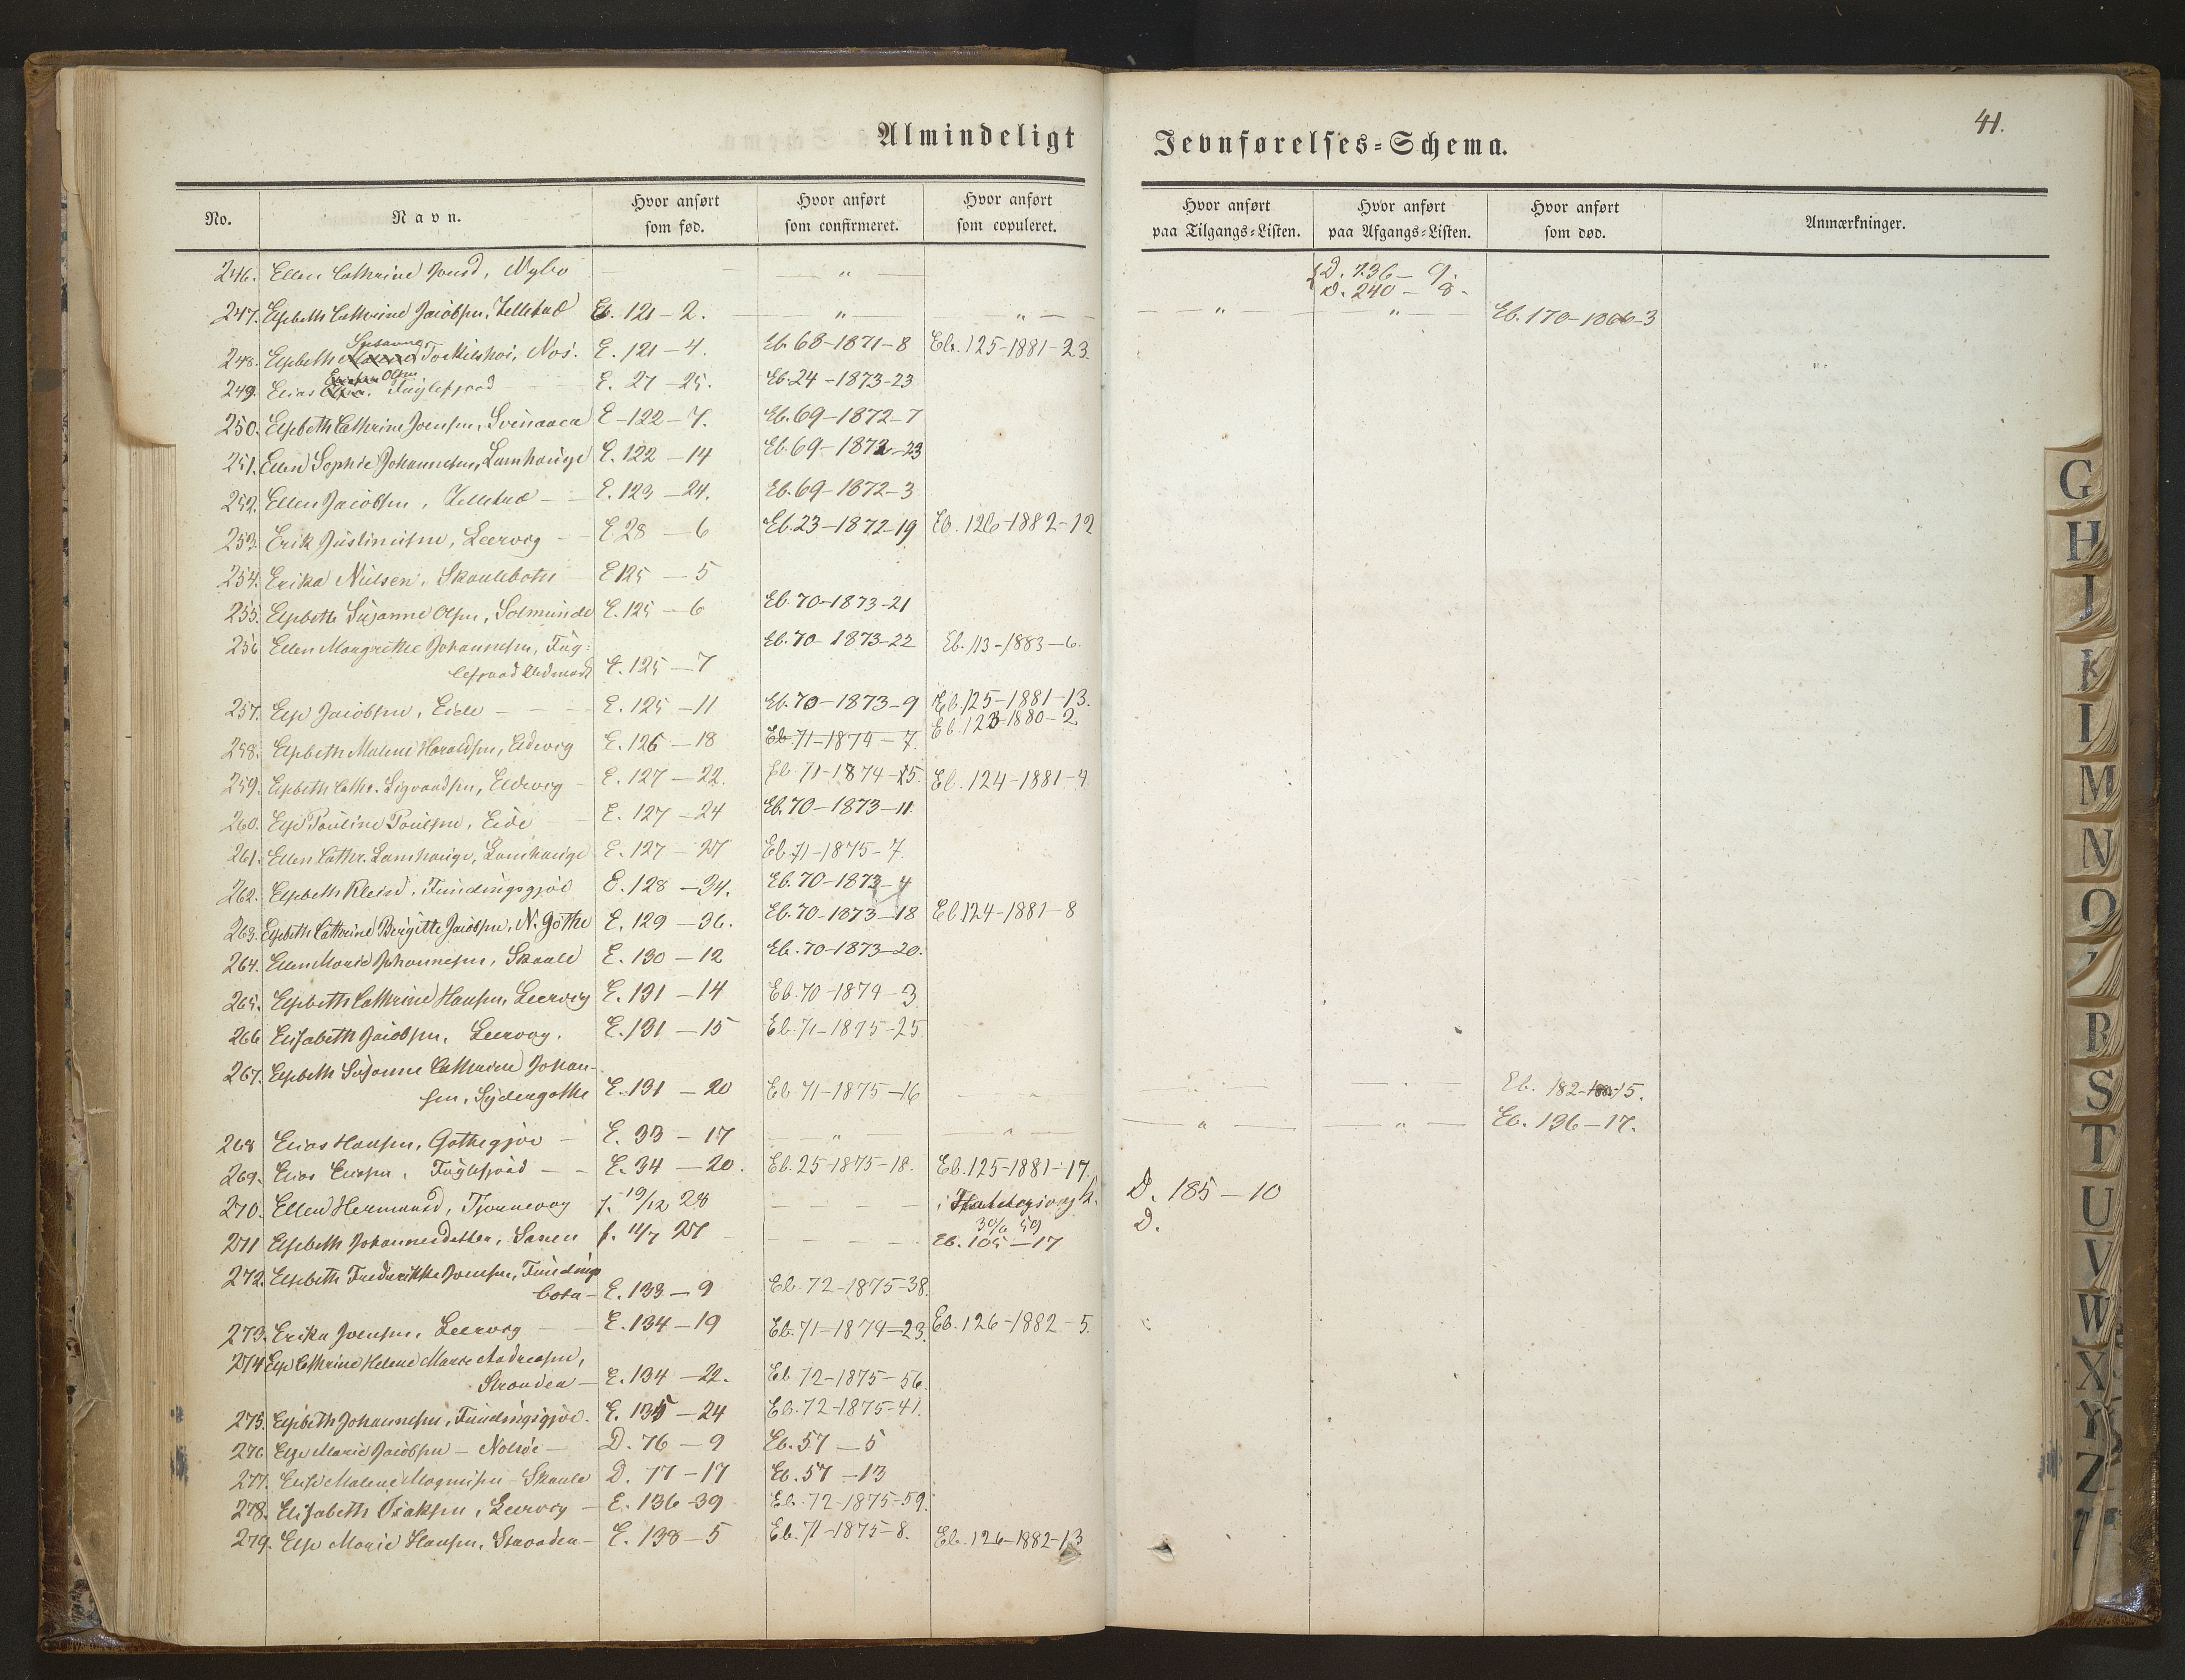 Almindeligt Jevnførelses-Schema.
41.
No. Navn. Hvor anført som fød. Hvor anført som confirmeret. Hvor anført som copuleret. Hvor anført paa Tilgangs-Listen. Hvor anført paa Afgangs-Listen. Hvor anført som død. Anmærkninger.
246. Ellen Cathrine — " — D. 236 — 9.
D. 240 — 8.
247. Elsbeth Cathrine Jacobsen, E. 121 — 2. — " — — " — — " — — " — Eb. 170-1866-3
248. Elsbeth Susanne E. 121 — 4. Eb 68-1871-8 Eb. 125-1881-23.
249. Elias Olsen Fuglefjord E. 27 — 25. Eb. 24-1873-23
250. Elsbeth Cathrine Joensen, Svinaaca E-122-7. Eb. 69-1872-7
251. Ellen Sophie Johannesen, Lamhauge E. 122 — 14 Eb. 69-1872-23
252. Ellen Jacobsen, E. 123 — 24. Eb. 69-1872-3
253. Erik Justinusen, Leervig E 28 — 6 Eb. 23-1872-19 Eb. 126-1882-12
254. Erika Nielsen, E 125 — 5
255. Elsbeth Susanne Olsen, Solmunde E. 125 — 6 Eb. 70-1873-21
256 Ellen Margrethe Johannesen, Fug-
lefjord E. 125 — 7 Eb. 70-1873-22 Eb. 113-1883-6.
257. Else Jacobsen, Eide E. 125 — 11 Eb. 70-1873-9 Eb. 125-1881-13.
258. Elsbeth Malene Haraldsen, Eldevig E. 126 — 18 Eb 71-1874-7. Eb. 123-1880-2.
259. Elsbeth Cathr. Sigvardsen, Eldevig E. 127 — 22. Eb. 71-1874-15. Eb. 124-1881-4
260. Else Pauline Poulsen, Eide E. 127 — 24 Eb. 70-1873-11
261. Ellen Cathr. Lamhauge, Lamhauge E. 127 — 27 Eb. 71-1875-7.
262. Elsbeth Klein, Fundingsgjov E. 128 — 34. Eb. 70-1873-4
263. Elsbeth Cathrine Birgitte Jacobsen, N. Gøthe E. 129 — 36. Eb. 70-1873-18 Eb 124-1881-8
264. Ellen Marie Johannesen, Skaale E. 130 — 12 Eb. 70-1873-20.
265. Elsbeth Cathrine Hansen, Leervig E. 131 — 14 Eb. 70-1874-3
266 Elisabeth Jacobsen, Leervig. E. 131 — 15 Eb. 71-1875-25
267. Elsbeth Susanne Cathrine Johan-
sen, Sydergøthe E. 131 — 20 Eb 71-1875-16 Eb. 182-15.
268 Elias Hansen, Gøthegjov E. 33 — 17 — " — — " — — " — — " — Eb. 136-17.
269. Elias Eliasen, Fuglefjord E. 34 — 20. Eb. 25-1875-18. Eb. 125-1881-17.
270. Ellen f. 19/12 28 — D. 185 — 10
271 Elsbeth Johannesdatter, f. 11/7 27 30/6 59
Eb. 105-17 D.
272. Elsbeth Frederikke Joensen, Fundings
botn E. 133 — 9 Eb. 72-1875-38.
273. Erika Joensen, Leervig E. 134 — 19 Eb. 71-1874-23. Eb. 126-1882-5.
274 Else Cathrine Helene Marie Andreasen,
Stranden E. 134 — 22. Eb 72-1875-56.
275. Elsbeth Johannesen, Fundingsgjov. E. 135 — 24 Eb. 72-1875-41.
276 Else Marie Jacobsen — Nolsøe D. 76 — 9 Eb. 57 — 5
277. Else Malene Magnusen Skaale D. 77 — 17 Eb. 57 — 13
278. Elisabeth Isaksen, Leervig E. 136-39 Eb. 72-1875-59.
279. Else Marie Hansen, Stranden E. 138 — 5 Eb. 71-1875-8. Eb. 126-1882-13
G
H
I
K
L
M
N
O
R
S
T
U
V
W
X
Y
Z